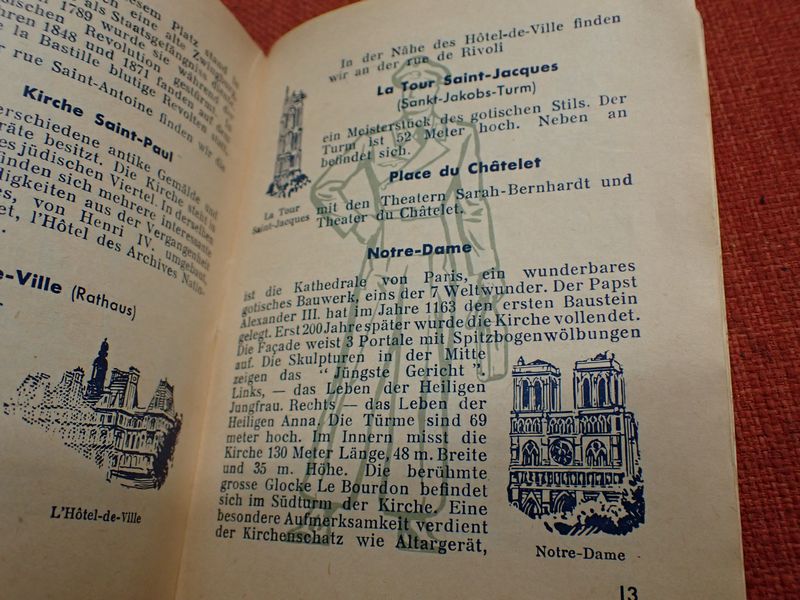 diesem Platz stand
eine alte Zwingburg
als Staatsgefängniss diente.
1789 wurde sie während
Revolution gestürmt.
1848 und 1871 fanden auf
la Bastille blutige Revolten
rue Saint-Antoine finden wir die
Kirche Saint-Paul
verschiedene antike Gemälde und
besitzt. Die Kirche steht
jüdischen Viertel. In derselben
finden sich mehrere interessante
aus der Vergangenheit
von Henri IV. umgebaut,
l'Hôtel des Archives Natio-
-Ville (Rathaus)
L'Hôtel-de-Ville
In der Nähe des Hôtel-de-Ville finden
wir an der rue de Rivoli
La Tour Saint-Jacques
(Sankt-Jakobs-Turm)
ein Meisterstück des gotischen Stils. Der
Turm ist 52 Meter hoch. Neben an
befindet sich.
La Tour
Saint-Jacques
Place du Châtelet
mit den Theatern Sarah-Bernhardt und
Theater du Châtelet.
Notre-Dame
ist die Kathedrale von Paris, ein wunderbares
gotisches Bauwerk, eins der 7 Weltwunder. Der Papst
Alexander III. hat im Jahre 1163 den ersten Baustein
gelegt. Erst 200 Jahre später wurde die Kirche vollendet.
Die Façade weist 3 Portale mit Spitzbogenwölbungen
auf. Die Skulpturen in der Mitte
zeigen das " Jüngste Gericht ".
Links, — das Leben der Heiligen
Jungfrau. Rechts — das Leben der
Heiligen Anna. Die Türme sind 69
meter hoch. Im Innern misst die
Kirche 130 Meter Länge, 48 m. Breite
und 35 m. Höhe. Die berühmte
grosse Glocke Le Bourdon befindet
sich im Südturm der Kirche. Eine
besondere Aufmerksamkeit verdient
der Kirchenschatz wie Altargerät,
Notre-Dame
13